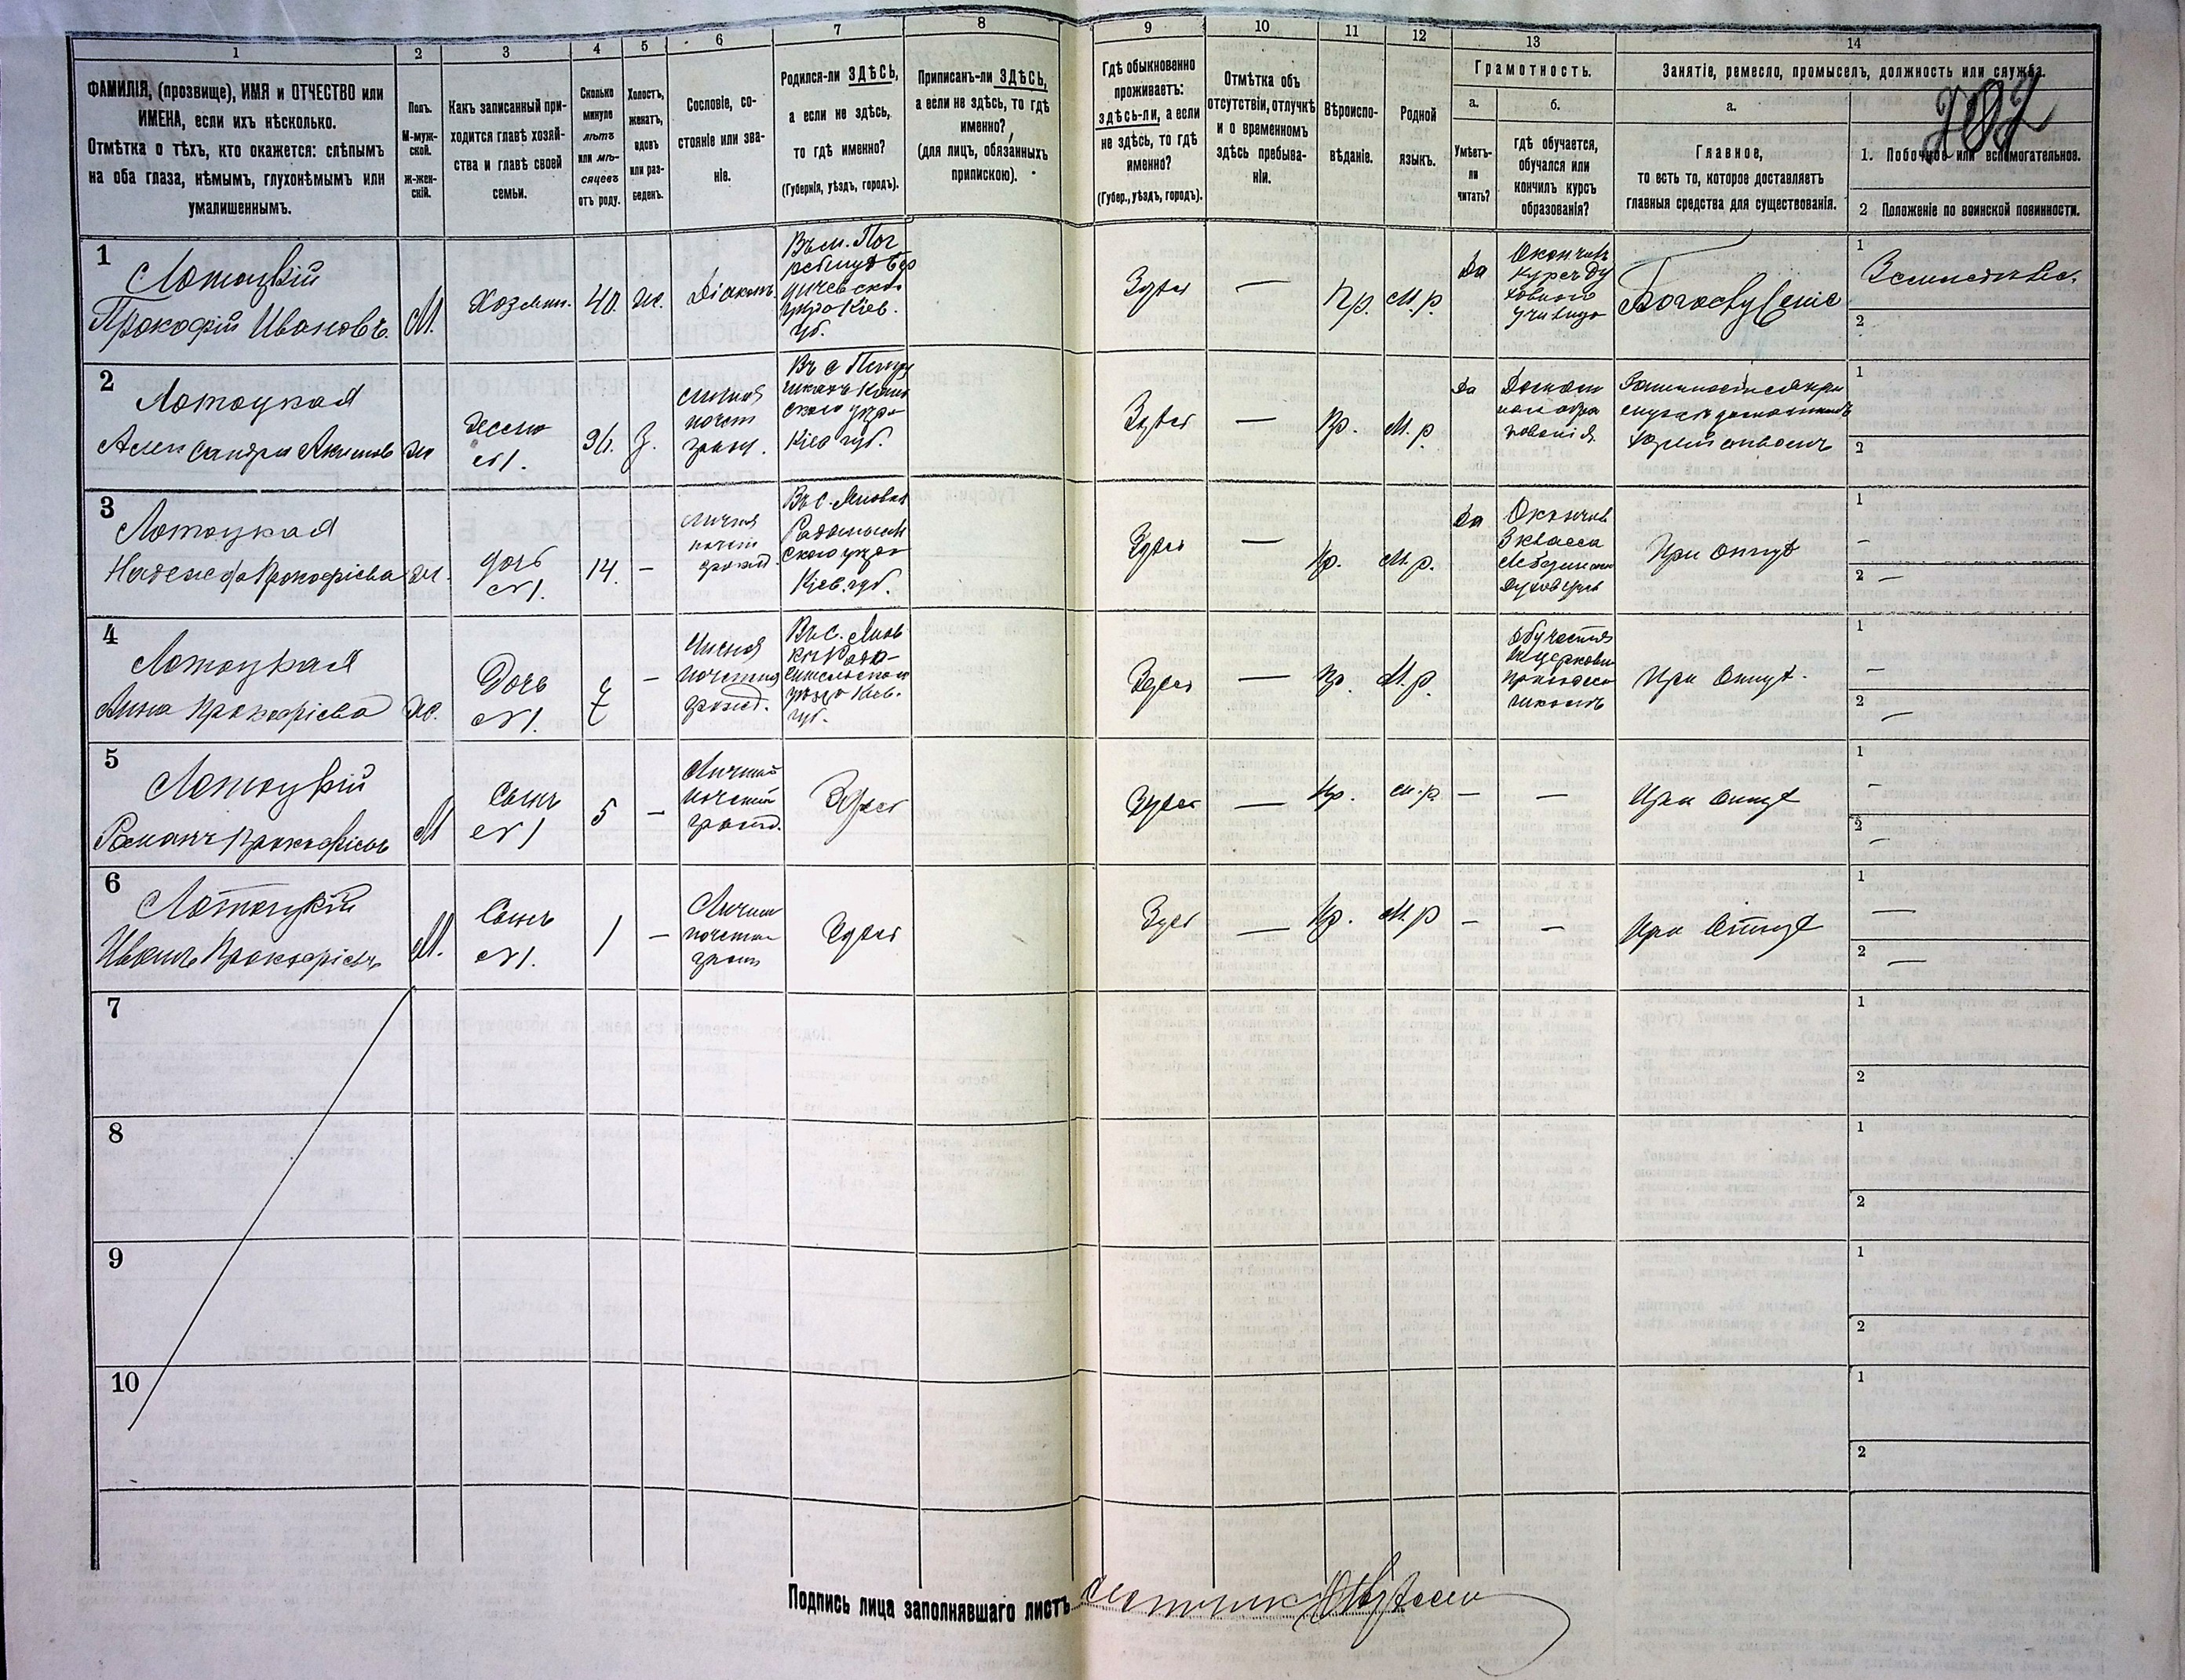 1 2 3 4 5 6 7 8 9 10 11 12 13 14
ФАМИЛІЯ, (прозвище), ИМЯ и ОТЧЕСТВО или
ИМЕНА, если ихъ нѣсколько.
Отмѣтка о тѣхъ, кто окажется: слѣпымъ
на оба глаза, нѣмымъ, глухонѣмымъ или
умалишеннымъ.
Полъ.
М-муж-
ской.
ж-жен-
скій.
Какъ записанный при-
ходится главѣ хозяй-
ства и главѣ своей
семьи.
Сколько
минуло
лѣтъ
или мѣ-
сяцевъ
отъ роду.
Холостъ,
женатъ,
вдовъ
или раз-
веденъ.
Сословіе, со-
стояніе или зва-
ніе.
Родился-ли ЗДѢСЬ,
а если не здѣсь,
то гдѣ именно?
(Губернія, уѣздъ, городъ).
Приписанъ-ли ЗДѢСЬ,
а если не здѣсь, то гдѣ
именно?
(для лицъ, обязанныхъ
припискою).
Гдѣ обыкновенно
проживаетъ:
здѣсь-ли, а если
не здѣсь, то гдѣ
именно?
(Губер., уѣздъ, городъ).
Отмѣтка объ
отсутствіи, отлучкѣ
и о временномъ
здѣсь пребыва-
ніи.
Вѣроиспо-
вѣданіе.
Родной
языкъ.
Грамотность.
а.
Умѣетъ-
ли
читать?
б.
гдѣ обучается,
обучался или
кончилъ курсъ
образованія?
Занятіе, ремесло, промыселъ, должность или служба.
а.
Главное,
то есть то, которое доставляетъ
главныя средства для существованія.
1. Побочное или вспомогательное.
2 Положеніе по воинской повинности.
1
Лотоцкій
Прокофій Ивановъ.
М.
Хозяин.
40.
же.
Діаконъ.
Въ м. Пог
ребищѣ Бер
дичевска
уѣзда Кіев.
губ.
Здѣсь
—
Пр.
М. р.
Да
Окончилъ
курсъ Ду
ховного
училища
Богослуженіе
1
2
2
Лотоцкая
Александра Акимов
же
жена
№1.
З.
личная
почет
гражд.
Кіев губ.
Здѣсь
—
Пр.
М. р.
Да
Домаш
нее обра
зованія
1
2
3
Лотоцкая
Надежда Прокофіева
же.
дочь
№1.
14.
—
личная
почет
гражд.
Въ С. Яновка
Радомысль
ского уѣзда
Кіев. губ.
Здѣсь
—
Пр.
М. р.
Да
Окончив
3 класса
При отцѣ
1
—
2 —
4
Лотоцкая
Анна Прокофіева
же.
Дочь
№1.
7
—
Личная
почетная
гражд.
Въ С. Янов
уѣзда Кіев.
губ.
Здѣсь
—
Пр.
М. р.
Обучается
При отцѣ.
1
—
2
—
5
Лотоцкій
Романъ Прокофіевъ
М
Сынъ
№1
5
—
Личный
почетный
гражд.
Здѣсь
Здѣсь
—
Пр.
м. р.
—
—
При отцѣ
1
—
2
—
6
Лотоцкій
Иванъ Прокофіевъ
М.
Сынъ
№1.
1
—
Личный
почетн
гражд
Здѣсь
Здѣсь
—
Пр.
М. р
—
—
При отцѣ
1
—
2
—
7
1
2
8
1
2
9
1
2
10
1
2
Подпись лица заполнявшаго листъ